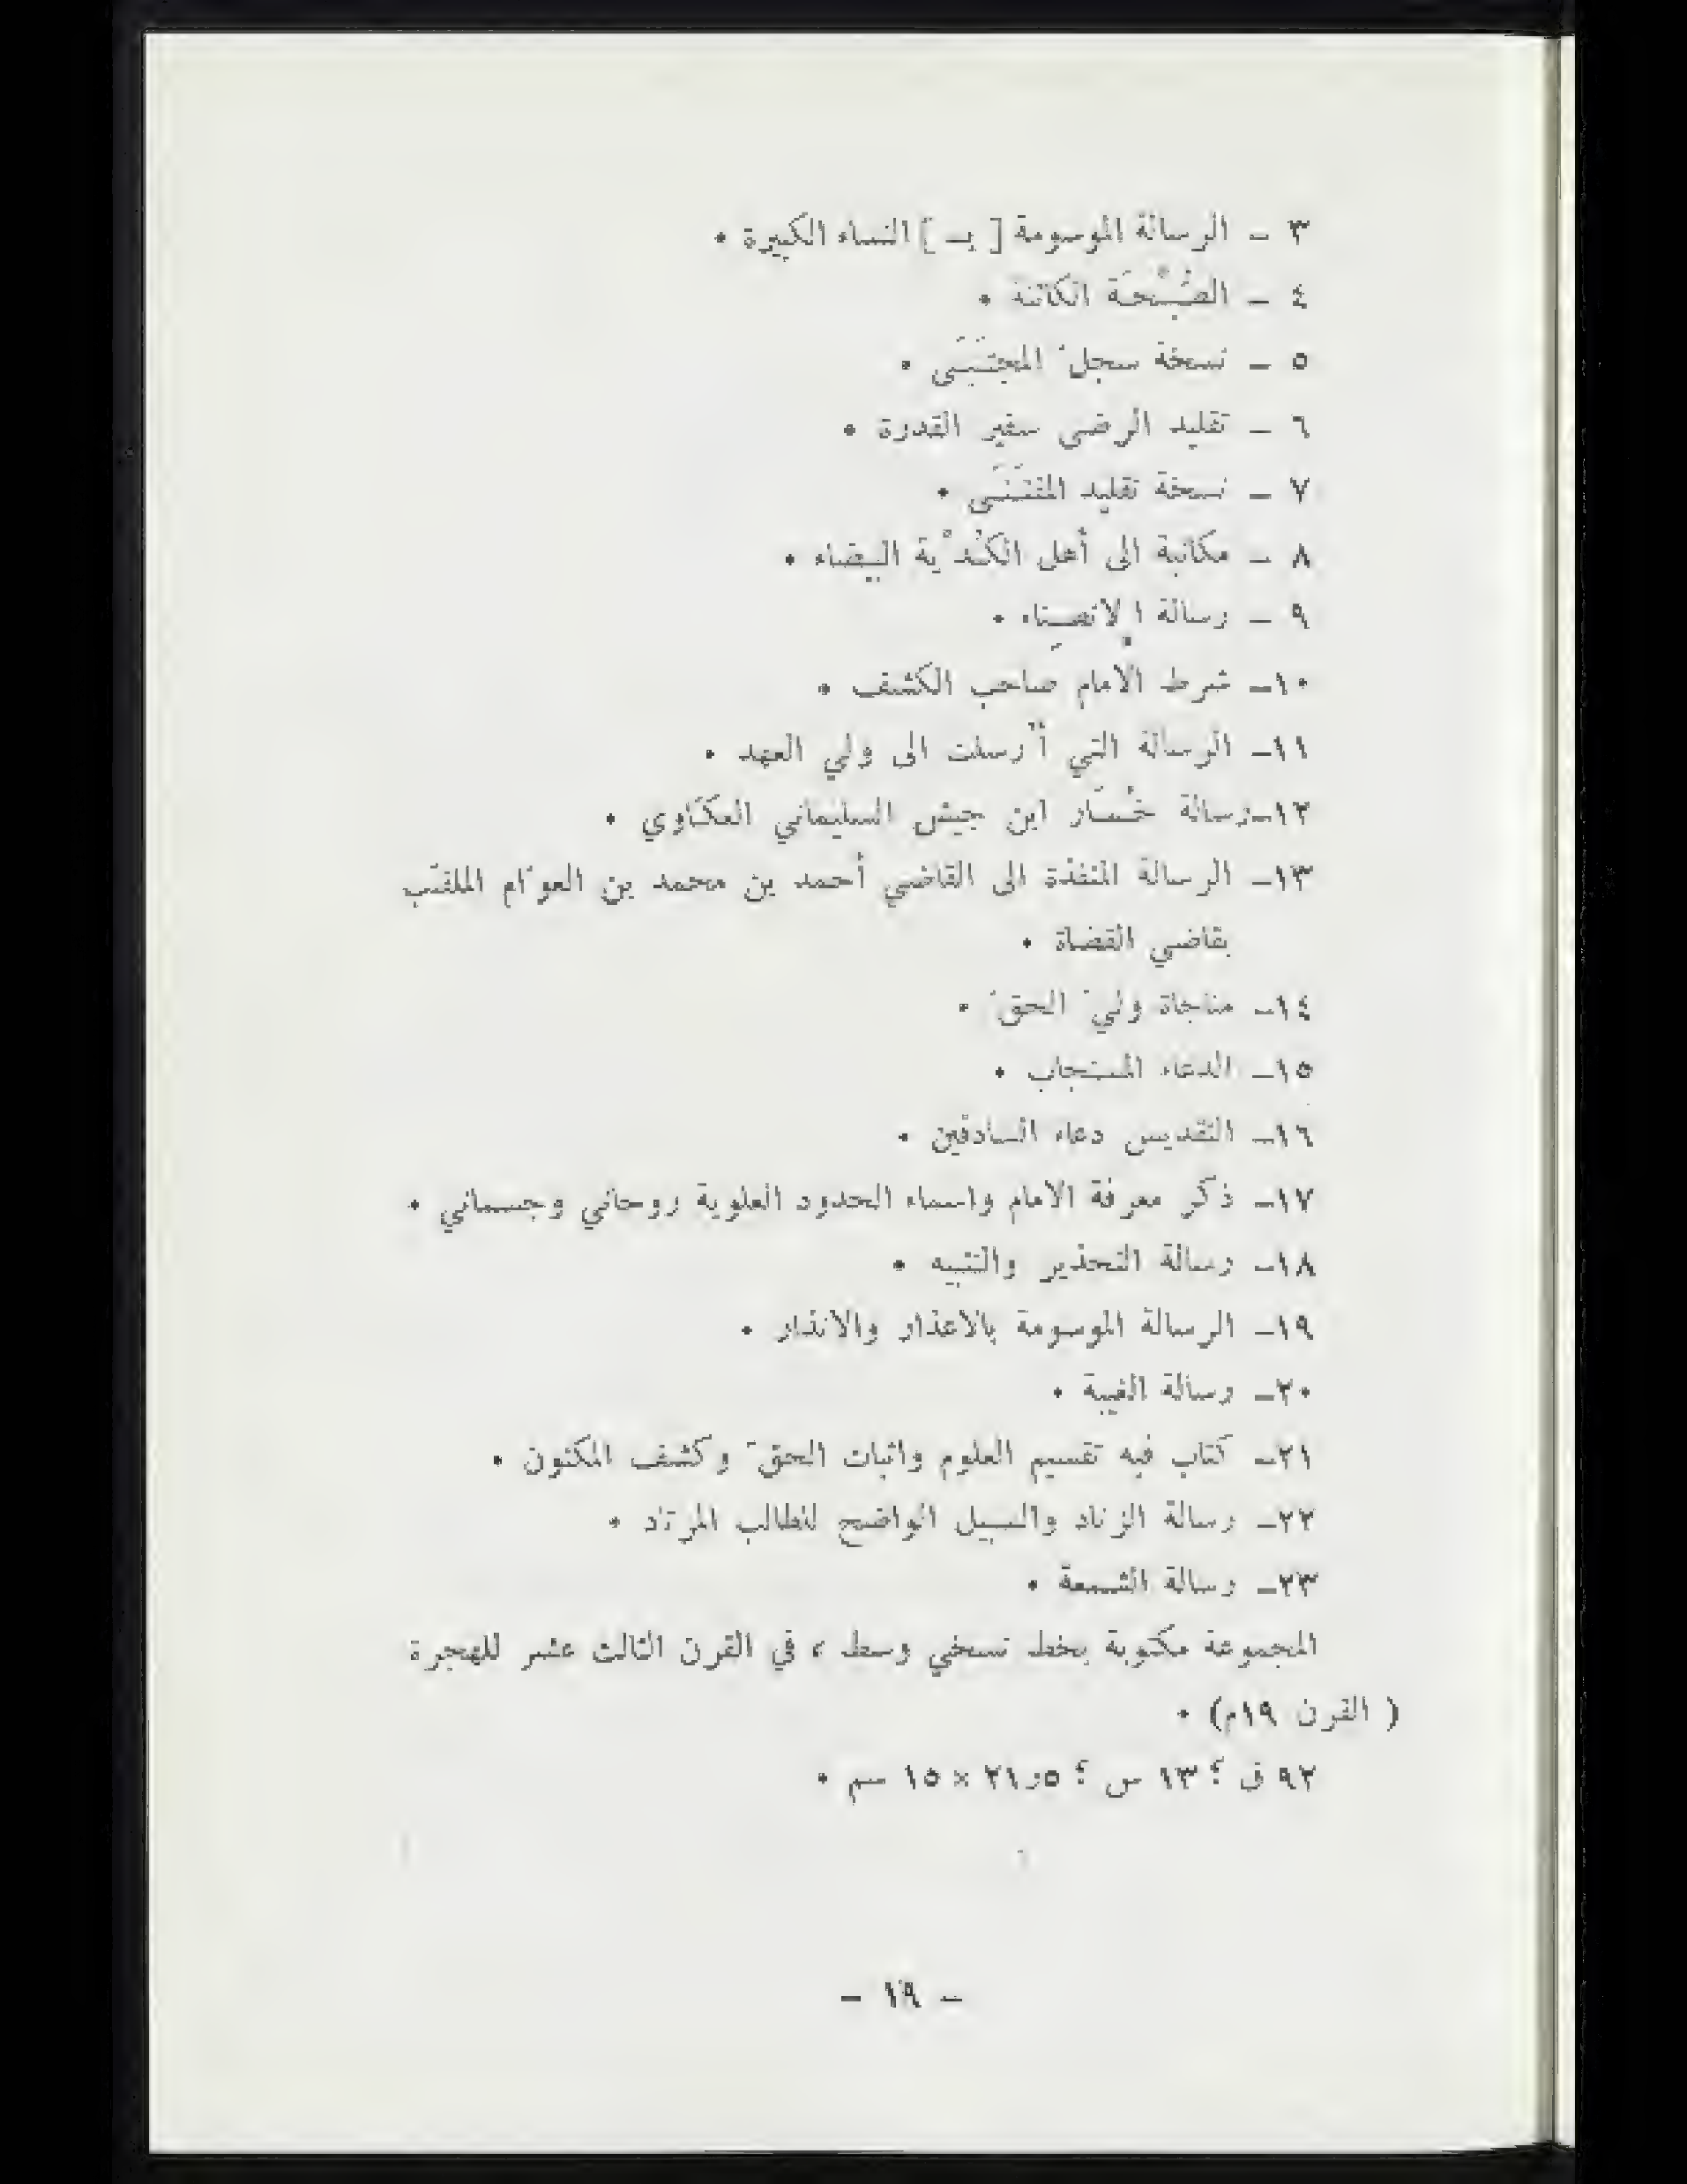 ٣ – الرسالة الموسومة [ بـ ] النساء الكبيرة ٠
٤ – الصُّبْحَة الكائنة ٠
٥ – نسخة سجلّ المجتَبَى ٠
٦ – تقليد الرضي سفير القدرة ٠
٧ – نسخة تقليد المقتَنَى ٠
٨ – مكاتبة الى أهل الكُدْية البيضاء ٠
٩ – رسالة الانصِناء ٠
١٠– شرط الامام صاحب الكشف ٠
١١– الرسالة التي أُرسلت الى ولي العهد ٠
١٢–رسالة خُمَار ابن جيش السليماني العكّاوي ٠
١٣– الرسالة المنفذة الى القاضي أحمد بن محمد بن العوّام الملقّب
بقاضي القضاة ٠
١٤– مناجاة وليّ الحقّ ٠
١٥– الدعاء المستجاب ٠
١٦– التقديس دعاء السادقين ٠
١٧– ذكر معرفة الامام واسماء الحدود العلوية روحاني وجسماني ٠
١٨– رسالة التحذير والتنبيه ٠
١٩– الرسالة الموسومة بالاعذار والانذار ٠
٢٠– رسالة الغيبة ٠
٢١– كتاب فيه تقسيم العلوم واثبات الحقّ وكشف المكنون ٠
٢٢– رسالة الزناد والسبيل الواضح للطالب المرتاد ٠
٢٣– رسالة الشمعة ٠
المجموعة مكتوبة بخط نسخي وسط ، في القرن الثالث عشر للهجرة
( القرن ١٩م) ٠
٩٢ ق ؛ ١٣ س ؛ ٢١٫٥ × ١٥ سم ٠
– ١٩ –